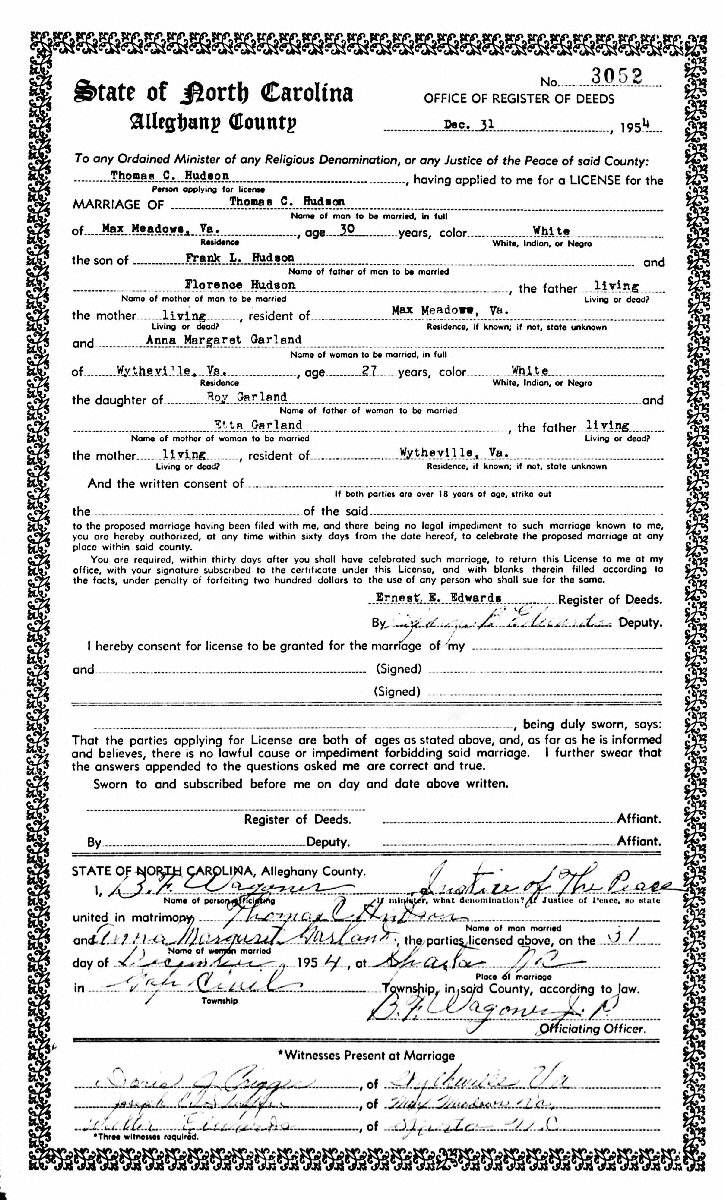 No. 3052
State of North Carolina
OFFICE OF REGISTER OF DEEDS
Alleghany County
Dec. 31, 1954
To any Ordained Minister of any Religious Denomination, or any Justice of the Peace of said County:
Thomas C. Hudson, having applied to me for a LICENSE for the
Person applying for license
MARRIAGE OF Thomas C. Hudson
Name of man to be married, in full
of Max Meadows, Va., age 30 years, color White
Residence White, Indian, or Negro
the son of Frank L. Hudson and
Name of father of man to be married
Florence Hudson, the father living
Name of mother of man to be married Living or dead?
the mother living, resident of Max Meadows, Va.
Living or dead? Residence, if known; if not, state unknown
and Anna Margaret Garland
Name of woman to be married, in full
of Wytheville, Va., age 27 years, color White
Residence White, Indian, or Negro
the daughter of Roy Garland and
Name of father of woman to be married
Etta Garland, the father living
Name of mother of woman to be married Living or dead?
the mother living, resident of Wytheville, Va.
Living or dead? Residence, if known; if not, state unknown
And the written consent of
If both parties are over 18 years of age, strike out
the of the said
to the proposed marriage having been filed with me, and there being no legal impediment to such marriage known to me,
you are hereby authorized, at any time within sixty days from the date hereof, to celebrate the proposed marriage at any
place within said county.
You are required, within thirty days after you shall have celebrated such marriage, to return this License to me at my
office, with your signature subscribed to the certificate under this License, and with blanks therein filled according to
the facts, under penalty of forfeiting two hundred dollars to the use of any person who shall sue for the same.
Ernest E. Edwards Register of Deeds.
By Edwards Deputy.
I hereby consent for license to be granted for the marriage of my
and (Signed)
(Signed)
, being duly sworn, says:
That the parties applying for License are both of ages as stated above, and, as far as he is informed
and believes, there is no lawful cause or impediment forbidding said marriage. I further swear that
the answers appended to the questions asked me are correct and true.
Sworn to and subscribed before me on day and date above written.
Register of Deeds. Affiant.
By Deputy. Affiant.
STATE OF NORTH CAROLINA, Alleghany County.
I, B. F. Wagoner Justice of The Peace
Name of person officiating If minister, what denomination? If Justice of Peace, so state
united in matrimony Thomas C. Hudson
Name of man married
and Anna Margaret Garland, the parties licensed above, on the 31
Name of women married
day of December, 1954, at Sparta NC
Place of marriage
in Gap Civil Township, in said County, according to law.
Township
B. F. Wagoner J. P.
Officiating Officer.
*Witnesses Present at Marriage
J, of Wytheville Va
Joseph C, of Max Meadows Va.
Edwards, of Sparta N.C
*Three witnesses required.